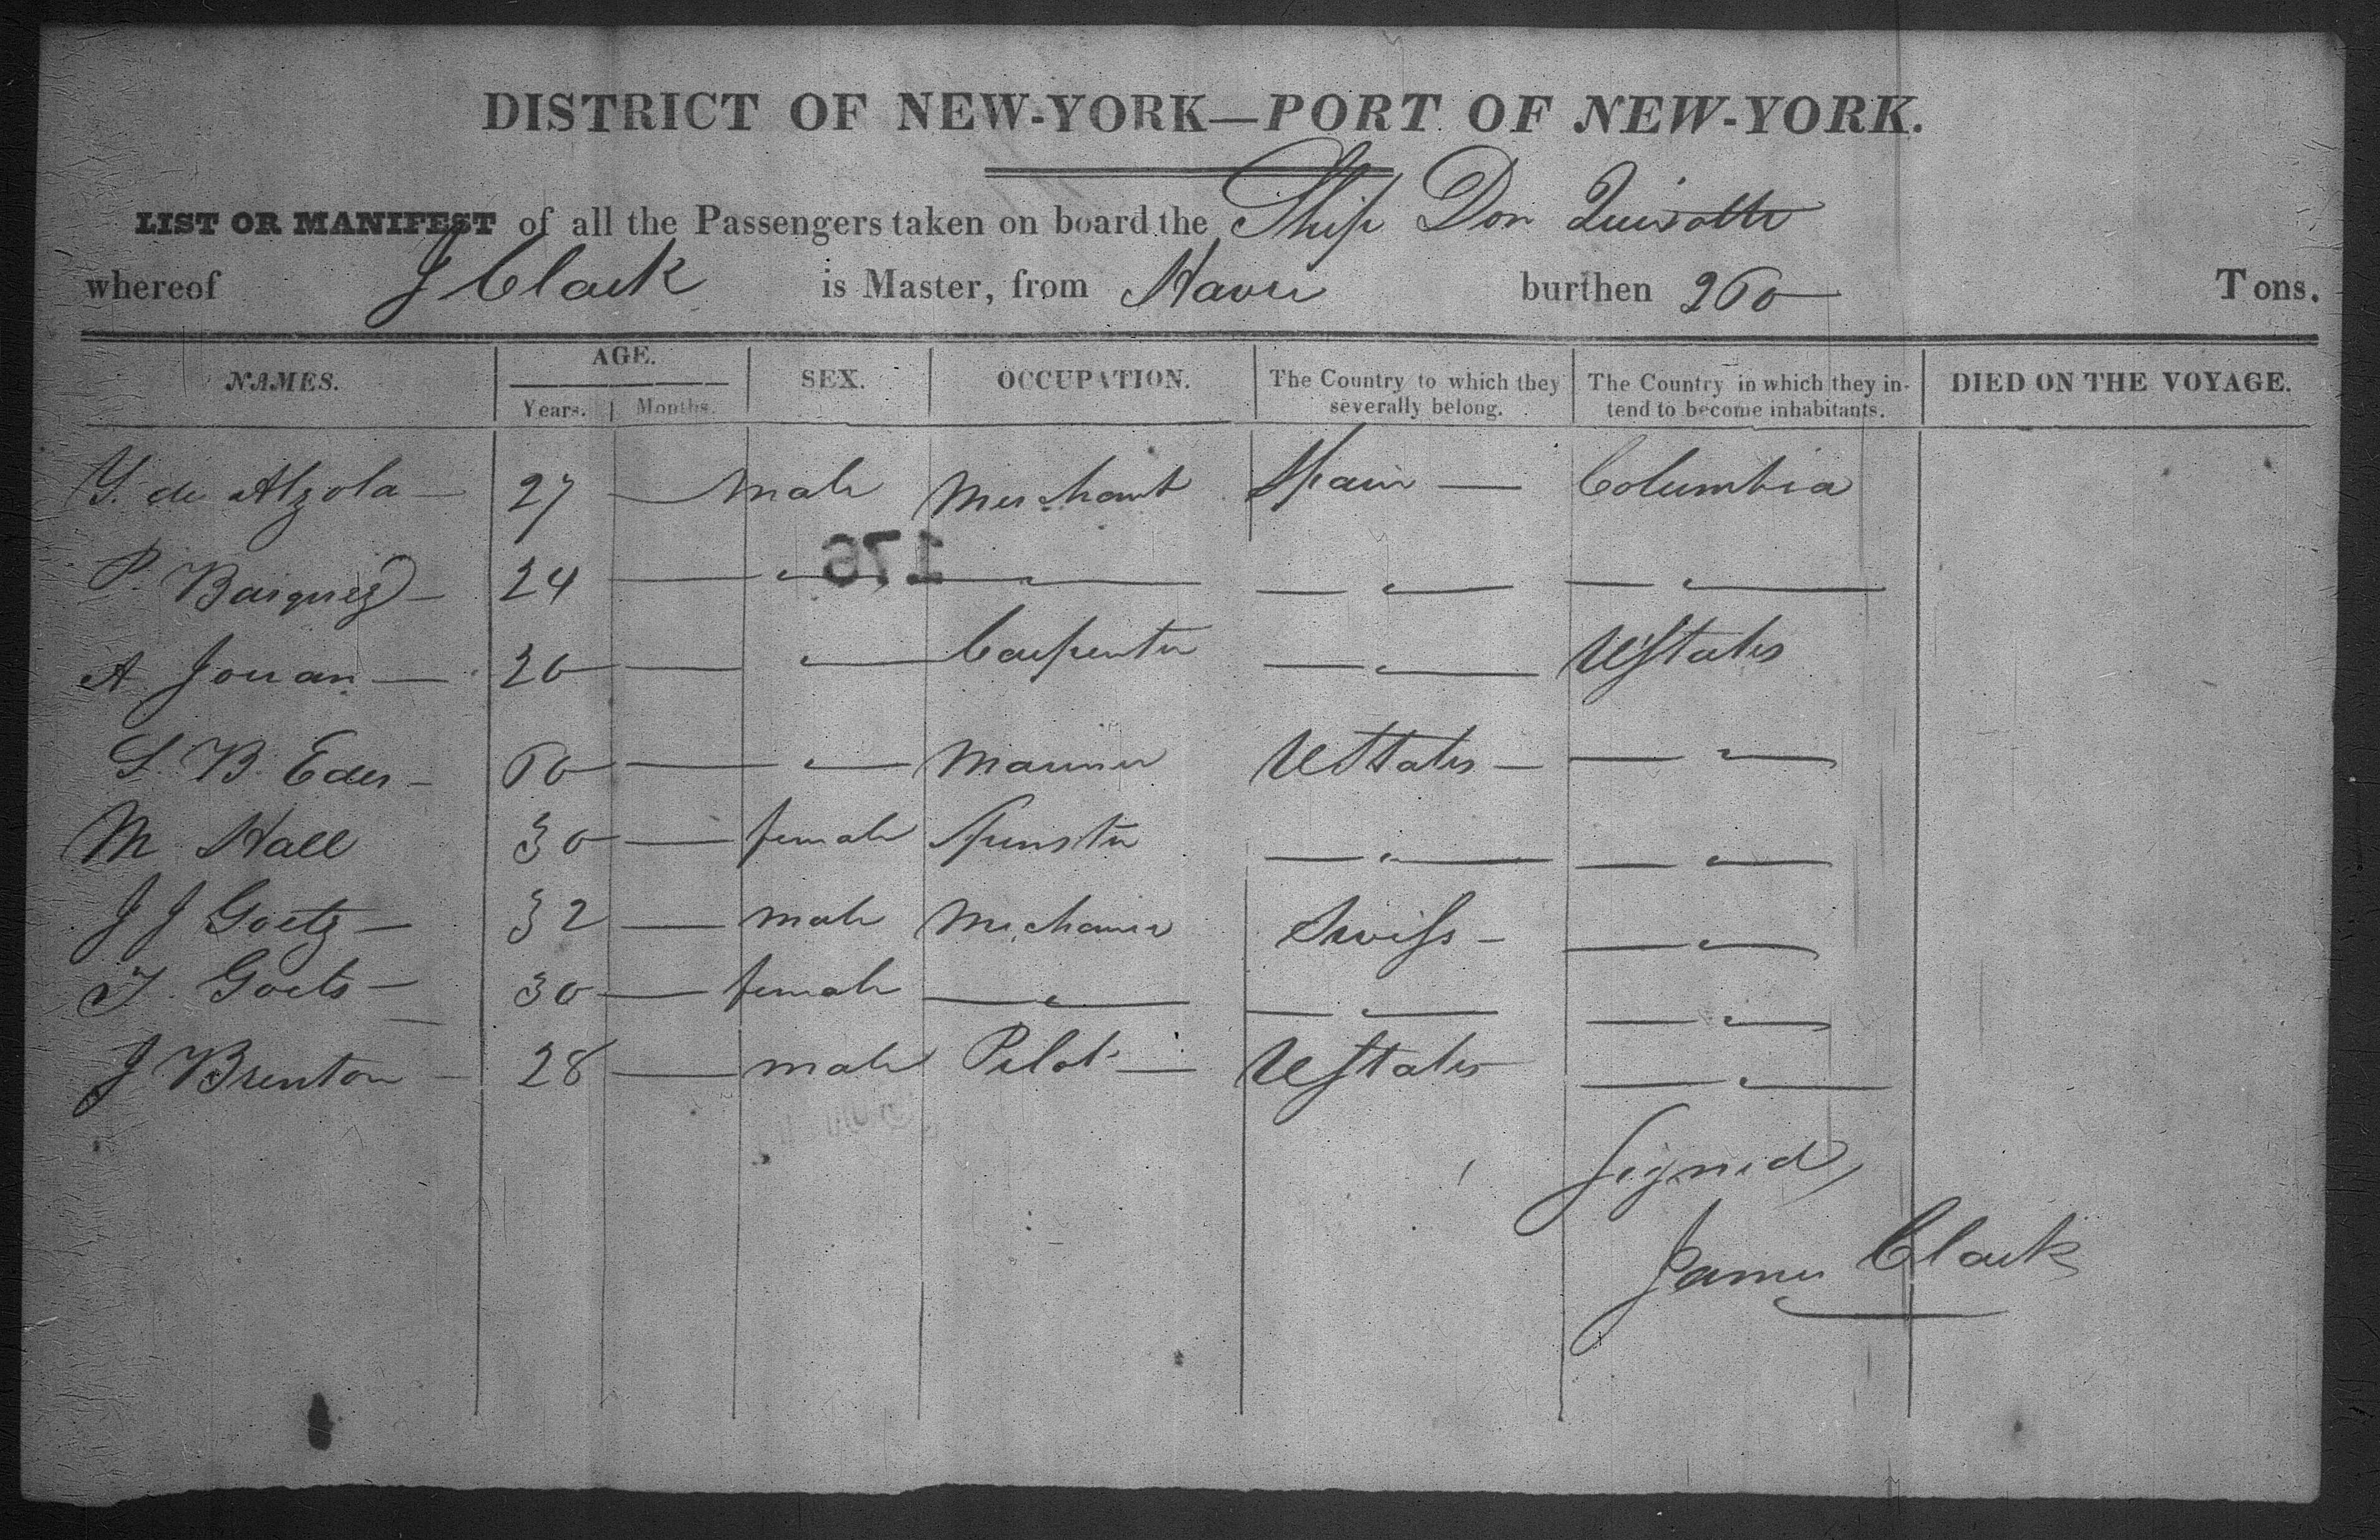 DISTRICT OF NEW-YORK—PORT OF NEW-YORK.
LIST OR MANIFEST of all the Passengers taken on board the Ship Don Quixotte
whereof J Clark is Master, from Havre burthen 260 Tons.
NAMES. AGE. Years. Months. SEX. OCCUPATION. The Country to which they severally belong. The Country in which they intend to become inhabitants. DIED ON THE VOYAGE.
Y. de Alzola — 27 — male Merchant Spain — Columbia
176
P. Basquez — 24 — " — " — — " — — " —
A Jouan — 20 — " — Carpenter — " — UStates
S. B. Eder — 60 — " — Mariner UStates — — " —
M Hall 30 — female Spinster — " — — " —
J J Goetz — 32 — male Mechanic Swiss — — " —
J. Goets — 30 — female — " — — " — — " —
J Brenton — 28 — male Pilot — UStates — " —
Signed
James Clark